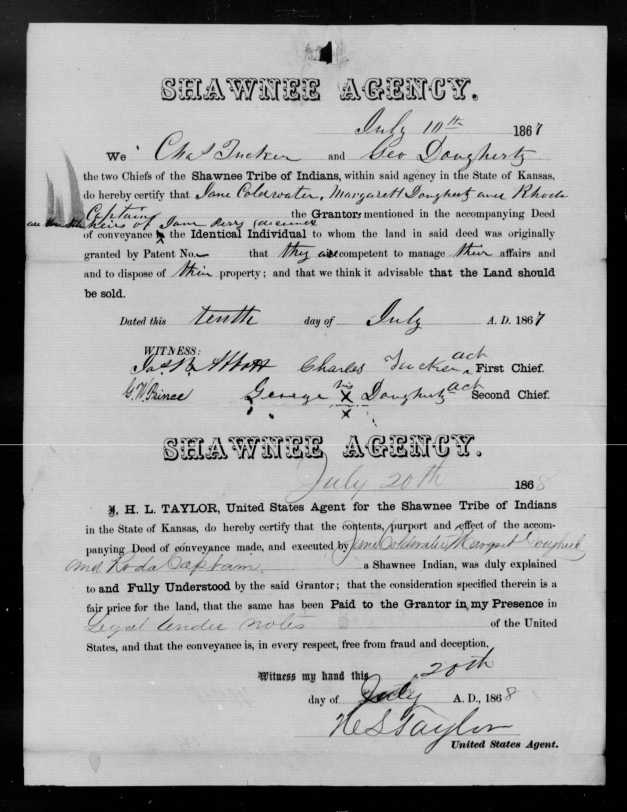 SHAWNEE AGENCY.
July 10th 1867
We Chas Tucker and Geo Dougherty
the two Chiefs of the Shawnee Tribe of Indians, within said agency in the State of Kansas,
do hereby certify that Jane Coldwater, Margarett Dougherty and Rhoda
Captain the Grantors mentioned in the accompanying Deed
are the heirs of Jam Perry deceased
of conveyance the Identical Individual to whom the land in said deed was originally
granted by Patent No. that they are competent to manage their affairs and
and to dispose of their property; and that we think it advisable that the Land should
be sold.
Dated this tenth day of July A. D. 1867
WITNESS:
Jas B Abbott Charles Tucker act First Chief.
G. W. Prince George his X Dougherty act Second Chief.
X
SHAWNEE AGENCY.
July 20th 1868
I, H. L. TAYLOR, United States Agent for the Shawnee Tribe of Indians
in the State of Kansas, do hereby certify that the contents, purport and effect of the accom-
panying Deed of conveyance made, and executed by Jane Coldwater, Margret Dougherty
and Roda Captain a Shawnee Indian, was duly explained
to and Fully Understood by the said Grantor; that the consideration specified therein is a
fair price for the land, that the same has been Paid to the Grantor in my Presence in
Legal tender notes of the United
States, and that the conveyance is, in every respect, free from fraud and deception.
Witness my hand this 20th
day of July A. D., 1868
H L Taylor
United States Agent.